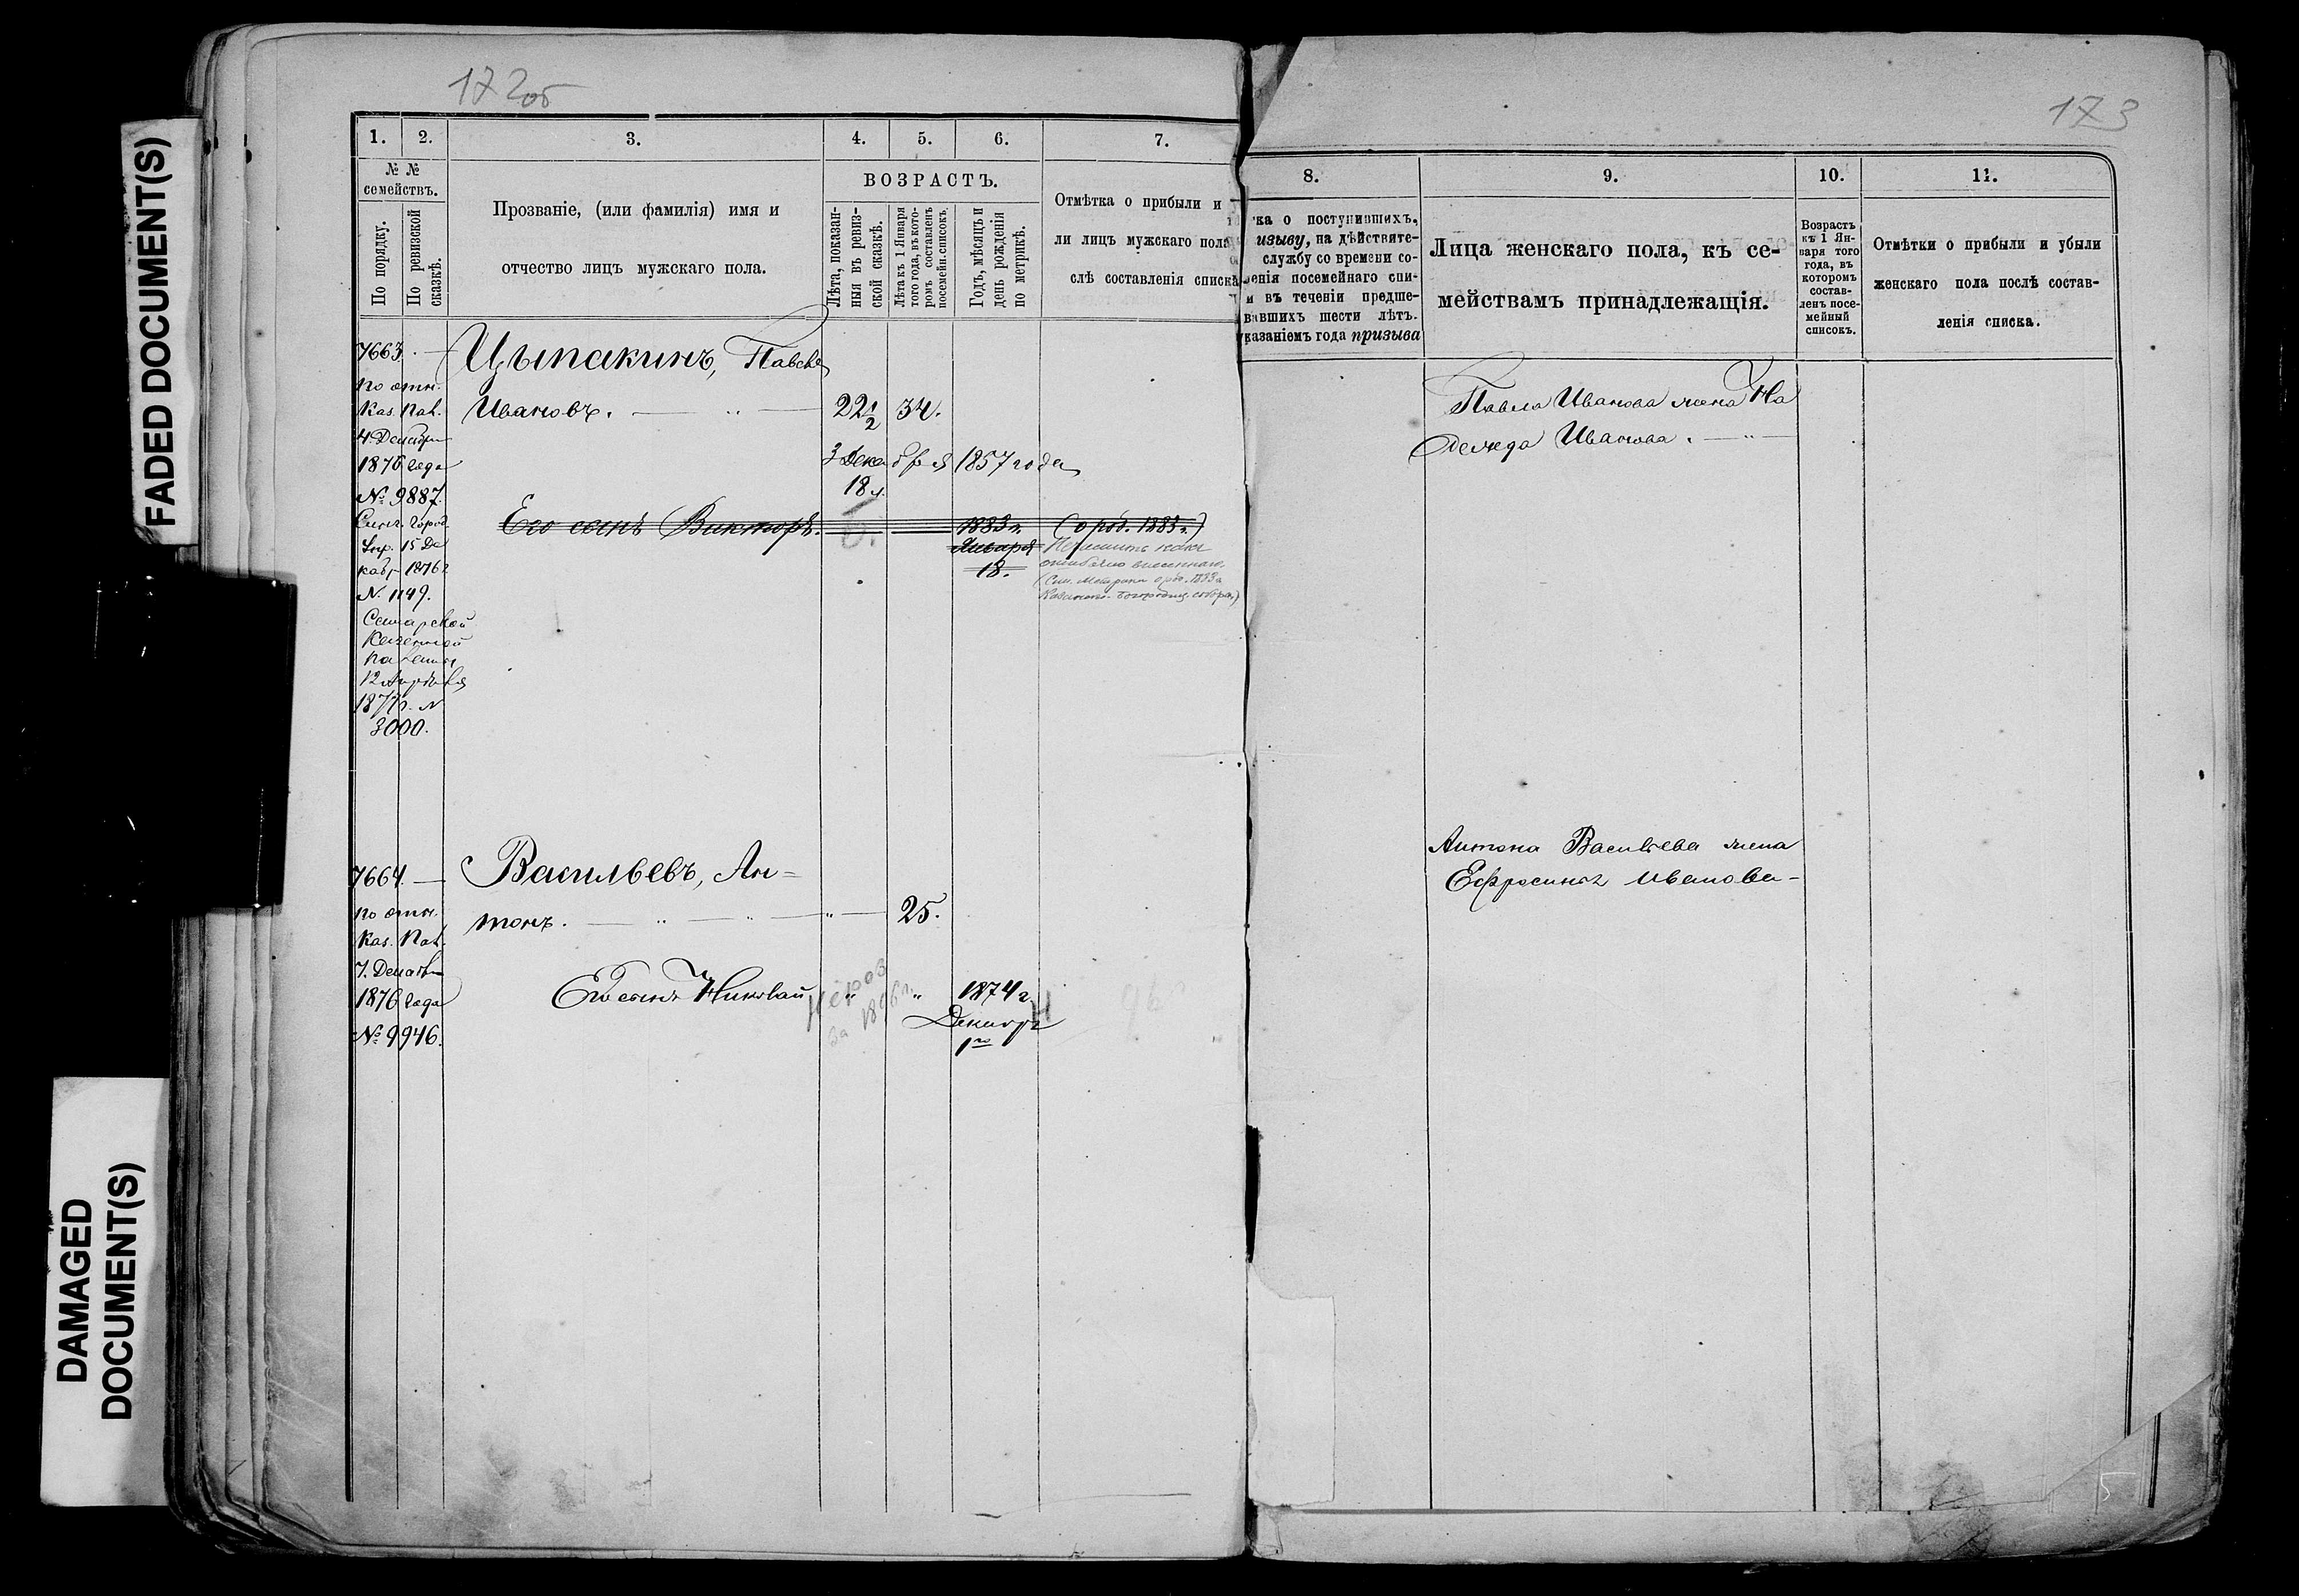 FADED DOCUMENT(S)
DAMAGED
DOCUMENT(S)
172об
1. 2. 3. 4. 5. 6. 7.
№ №
семействъ.
По порядку.
По ревизской
сказкѣ.
Прозваніе, (или фамилія) имя и
отчество лицъ мужскаго пола.
ВОЗРАСТЪ.
Лѣта, показан-
ныя въ ревиз-
ской сказкѣ.
Лѣта къ 1 Января
того года, въ кото-
ромъ составленъ
посемейн. списокъ.
Годъ, мѣсяцъ и
день рожденія
по метрикѣ.
Отмѣтка о прибыли и
ли лицъ мужскаго пола
слѣ составленія списка
7663. —
по отн.
Каз. Пал.
4. Декабря
1876 года
№ 9887.
Симг. город.
Упр. 15 Де
кабр 1876 г
№ 1149.
Самарской
Казенной
палаты
12 Апрѣля
1877 г. №
3000.
Цыпакинъ, Павелъ
Ивановъ. — „ — 22 1/2 34.
3 Дека бря 1857 года
18 л.
Его сынъ Викторъ. 1883 г. (о род. 1883 г.)
Января
18.
ошибочно внесеннаго.
7664. —
по отн.
Каз. Пал.
7. Декабря
1876 года
№ 9946.
Васильевъ, Ан=
тонъ. — „ — „ — „ — 25.
Его сынъ Николай „ „ 1874 г.
Декабря
1го
жероз
за 1896 г.
Н
96
173
8. 9. 10. 11.
ка о поступившихъ,
изыву, на дѣйствите-
службу со времени со-
енія посемейнаго спи-
и въ теченіи предше-
вавшихъ шести лѣтъ.
казаніемъ года призыва
Лица женскаго пола, къ се-
мействамъ принадлежащія.
Возрастъ
къ 1 Ян-
варя того
года, въ
которомъ
состав-
ленъ посе-
мейный
списокъ.
Отмѣтки о прибыли и убыли
женскаго пола послѣ состав-
ленія списка.
Павла Иванова жена На
дежда Иванова. — „ —
Антона Васильева жена
Ефросинья Иванова —
5